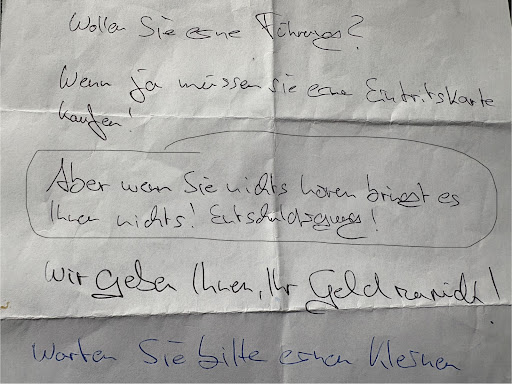 Wollen Sie eine Führung?
Wenn ja müssen sie eine Eintrittskarte
kaufen!
Aber wenn Sie nichts hören bringt es
Ihnen nichts! Entschuldigung!
Wir geben Ihnen, Ihr Geld zurück!
Warten Sie bitte einen kleinen